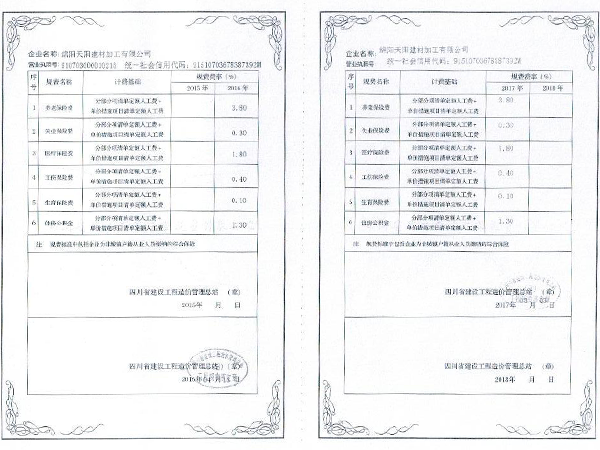 企业名称：绵阳天阳建材加工有限公司
营业执照号： 统一社会信用代码：91510703678387392W
序号 规费名称 计费基础 规费费率（%）
2015年 2016年
1 养老保险费 分部分项清单定额人工费+单价措施项目清单定额人工费 3.80
2 失业保险费 分部分项清单定额人工费+单价措施项目清单定额人工费 0.30
3 医疗保险费 分部分项清单定额人工费+单价措施项目清单定额人工费 1.80
4 工伤保险费 分部分项清单定额人工费+单价措施项目清单定额人工费 0.40
5 生育保险费 分部分项清单定额人工费+单价措施项目清单定额人工费 0.10
6 住房公积金 分部分项清单定额人工费+单价措施项目清单定额人工费 1.30
四川省建设工程造价管理总站 （章）
2015年 月 日
四川省建设工程造价管理总站 （章）
企业名称：绵阳天阳建材加工有限公司
营业执照号： 统一社会信用代码：91510703678387392W
序号 规费名称 计费基础 规费费率（%）
2017年 2018年
1 养老保险费 分部分项清单定额人工费+单价措施项目清单定额人工费 3.80
2 失业保险费 分部分项清单定额人工费+单价措施项目清单定额人工费 0.30
3 医疗保险费 分部分项清单定额人工费+单价措施项目清单定额人工费 1.80
4 工伤保险费 分部分项清单定额人工费+单价措施项目清单定额人工费 0.40
5 生育保险费 分部分项清单定额人工费+单价措施项目清单定额人工费 0.10
6 住房公积金 分部分项清单定额人工费+单价措施项目清单定额人工费 1.30
四川省建设工程造价管理总站 （章）
2017年 月 日
四川省建设工程造价管理总站 （章）
2018年 月 日